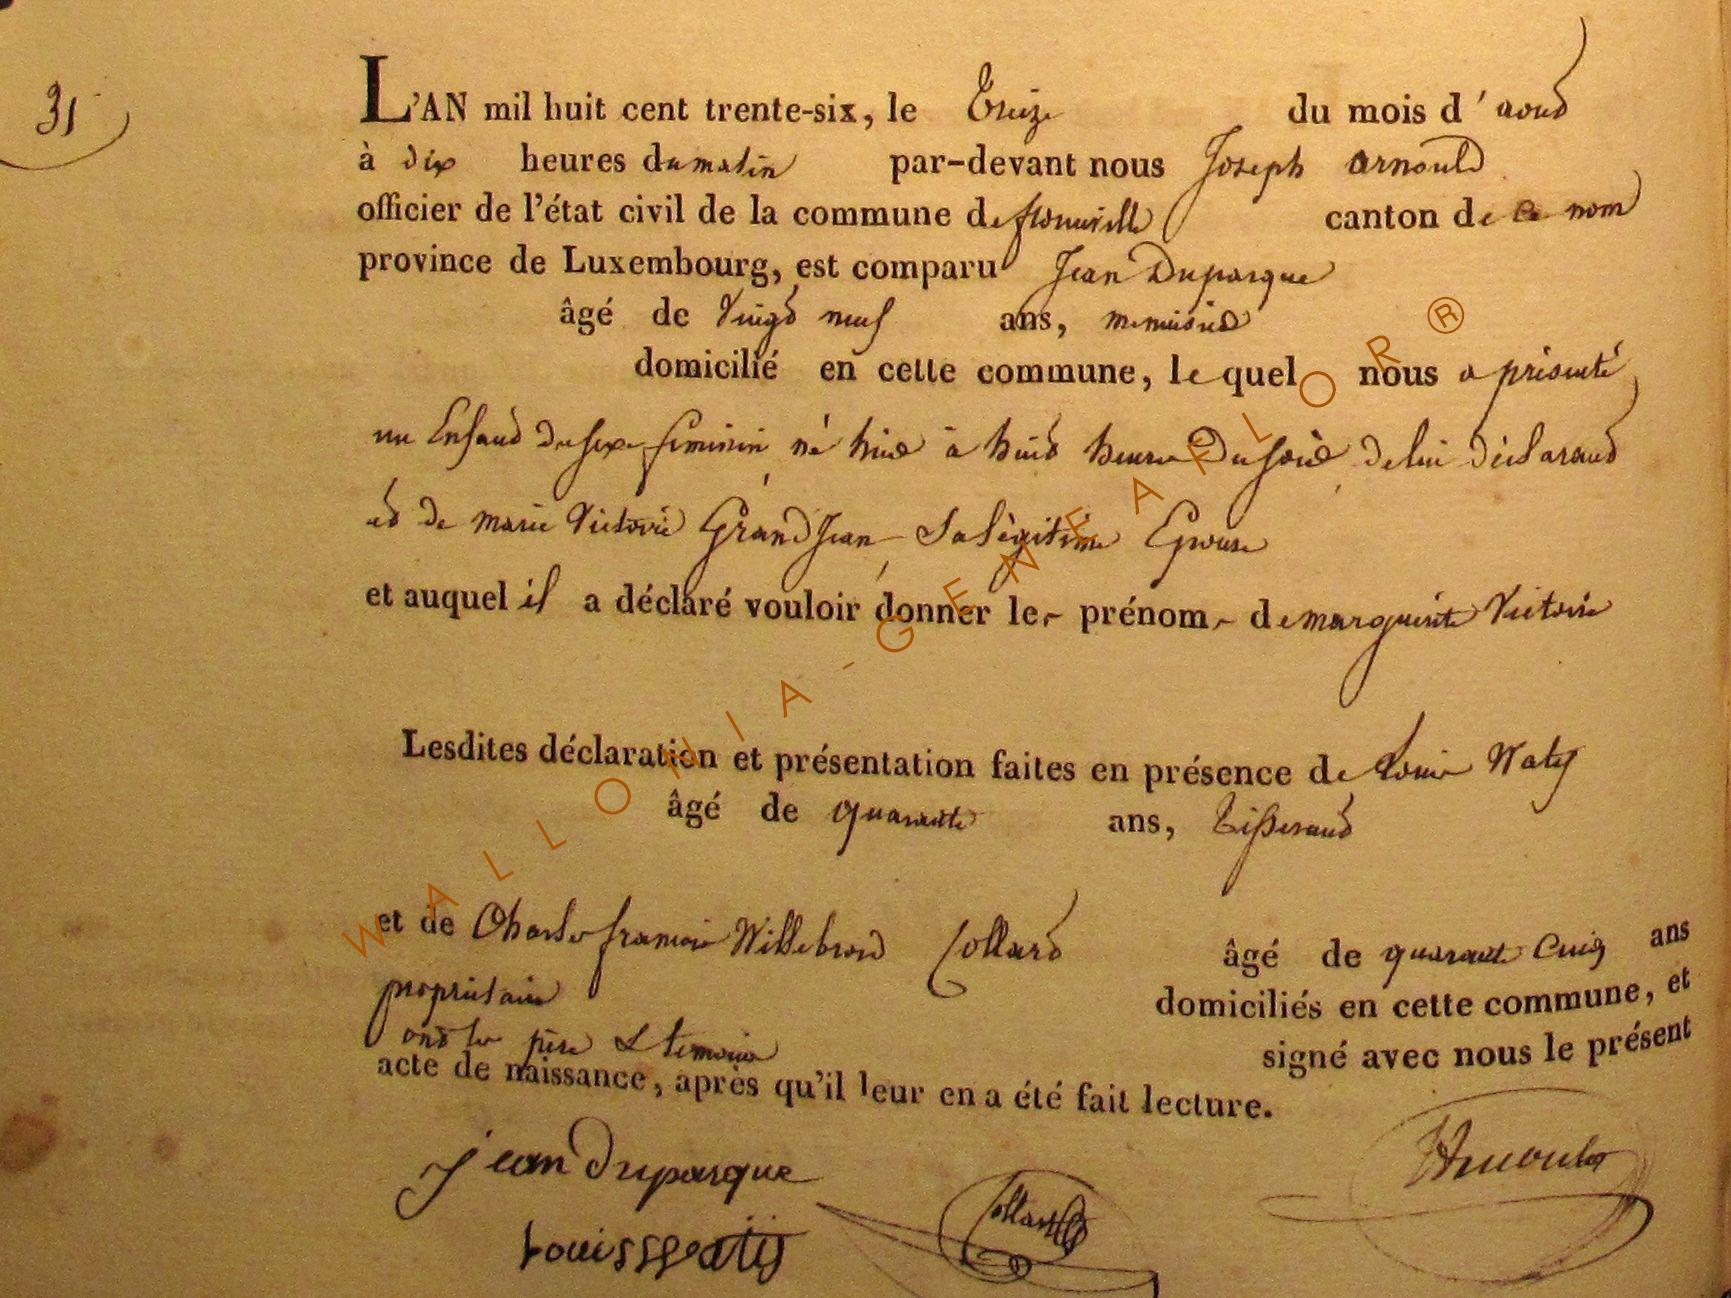 31
L'AN mil huit cent trente-six, le Treize du mois d'aoud
à dix heures du matin par-devant nous Joseph arnould
officier de l'état civil de la commune de florenville canton de ce nom
province de Luxembourg, est comparu Jean Duparque
âgé de Vingd neuf ans, menuisié
domicilié en cette commune, le quel nous a présenté
un Enfand du sexe feminin né hier à huid heures Du soir de lui déclarand
ed de marie Victoire GrandJean Sa légitime Epouse
et auquel il a déclaré vouloir donner les prénoms de marguerite Victoire
Lesdites déclaration et présentation faites en présence de Louis Waty
âgé de quarante ans, Tisserand
et de Charles françois Willebrord Collard âgé de quarante Cinq ans
propriétaire domiciliés en cette commune, et
ond les père & temoins signé avec nous le présent
acte de naissance, après qu'il leur en a été fait lecture.
jean Duparque
Collard
JArnould
Louis Watij
WALLONIA-GENEAFLOR®